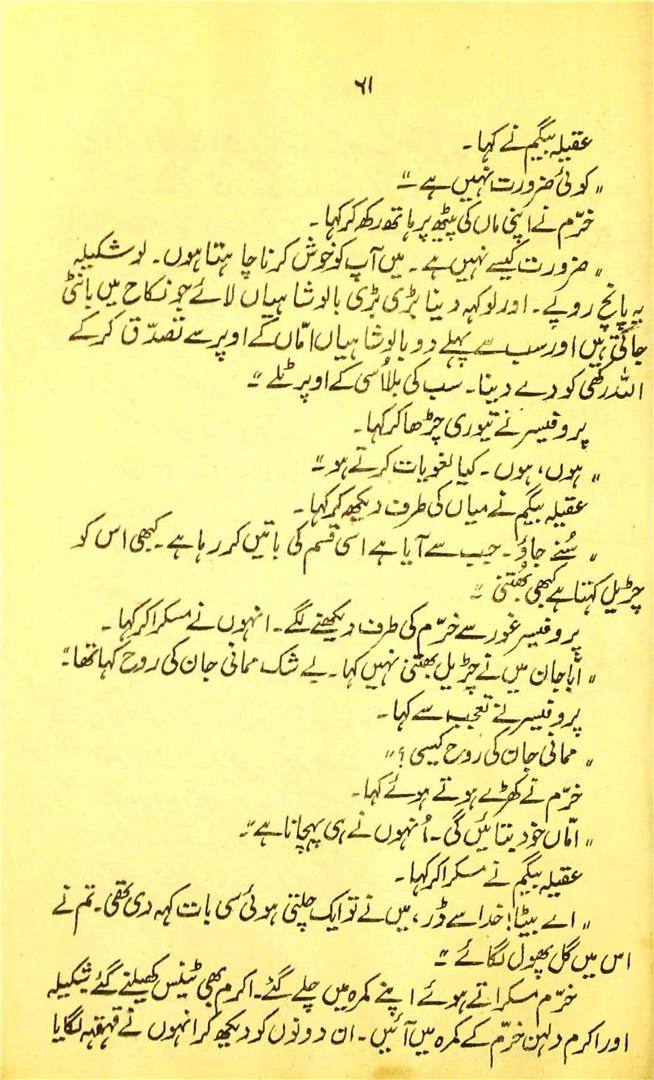 ۶۱
عقیلہ بیگم نے کہا۔
"کوئی ضرورت نہیں ہے۔"
خرّم نے اپنی ماں کی پیٹھ پر ہاتھ رکھ کر کہا۔
"ضرورت کیسے نہیں ہے۔ میں آپ کو خوش کرنا چاہتا ہوں۔ لو شکیلہ
یہ پانچ روپے۔ اور لو کہہ دینا بڑی بڑی بالوشاہیاں لائے جو نکاح میں بانٹی
جاتی ہیں اور سب سے پہلے دو بالوشاہیاں امّاں کے اوپر سے تصدّق کر کے
اللہ رکھی کو دے دینا۔ سب کی بلا اُسی کے اوپر ٹلے۔"
پروفیسر نے تیوری چڑھا کر کہا۔
"ہوں، ہوں۔ کیا لغویات کرتے ہو۔"
عقیلہ بیگم نے میاں کی طرف دیکھ کر کہا۔
"سُنے جاؤ۔ جب سے آیا ہے اسی قسم کی باتیں کر رہا ہے۔ کبھی اس کو
چڑیل کہتا ہے کبھی بھُتنی۔"
پروفیسر غور سے خرّم کی طرف دیکھنے لگے۔ انہوں نے مسکرا کر کہا۔
"ابّا جان میں نے چڑیل بھتنی نہیں کہا۔ بے شک ممانی جان کی روح کہا تھا۔"
پروفیسر نے تعجب سے کہا۔
"ممانی جان کی روح کیسی؟"
خرّم نے کھڑے ہوتے ہوئے کہا۔
"امّاں خود بتائیں گی۔ اُنہوں نے ہی پہچانا ہے۔"
عقیلہ بیگم نے مسکرا کر کہا۔
"اے بیٹا! خدا سے ڈر، میں نے تو ایک چلتی ہوئی سی بات کہہ دی تھی۔ تم نے
اس میں گل پھول لگائے۔"
خرّم مسکراتے ہوئے اپنے کمرہ میں چلے گئے۔ اکرم بھی ٹینس کھیلنے گئے شکیلہ
اور اکرم دلہن خرّم کے کمرہ میں آئیں۔ ان دونوں کو دیکھ کر انہوں نے قہقہہ لگایا